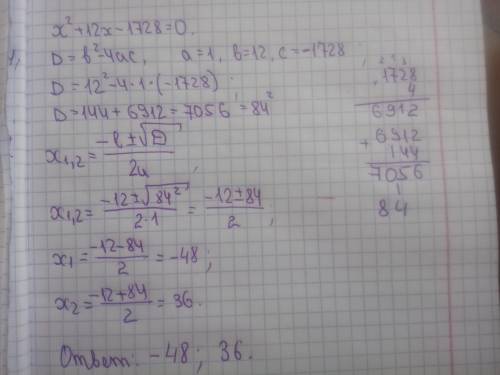 x² + 12x - 1728 = 0.
1, D = b² - 4ac, a = 1, b = 12, c = -1728
D = 12² - 4·1·(-1728)
D = 144 + 6912 = 7056 = 84²
x₁,₂ = (-b ± √D) / 2a,
x₁,₂ = (-12 ± √84²) / (2·1) = (-12 ± 84) / 2,
x₁ = (-12 - 84) / 2 = -48;
x₂ = (-12 + 84) / 2 = 36.
Ответ: -48; 36.
1728
4
6912
+ 6912
144
7056
84